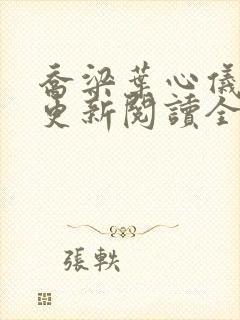 喬梁葉心儀
更新閱讀全
張軼